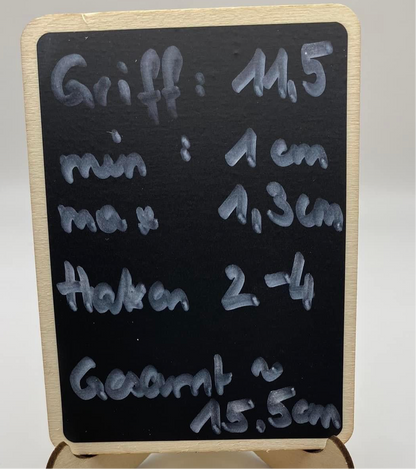 Griff: 11,5
min : 1 cm
max 1,3cm
Haken 2-4
Gesamt ~
15.5cm